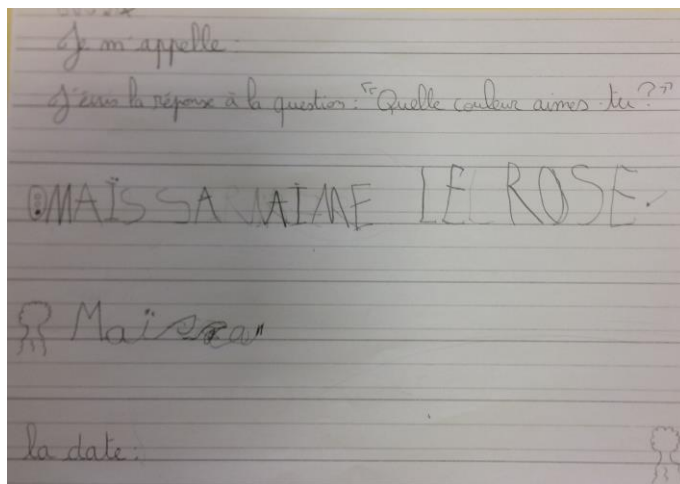 Je m'appelle.
J'écris la réponse à la question : "Quelle couleur aimes-tu ?"
MAÏSSA AIME LE ROSE.
Maïssa
la date :